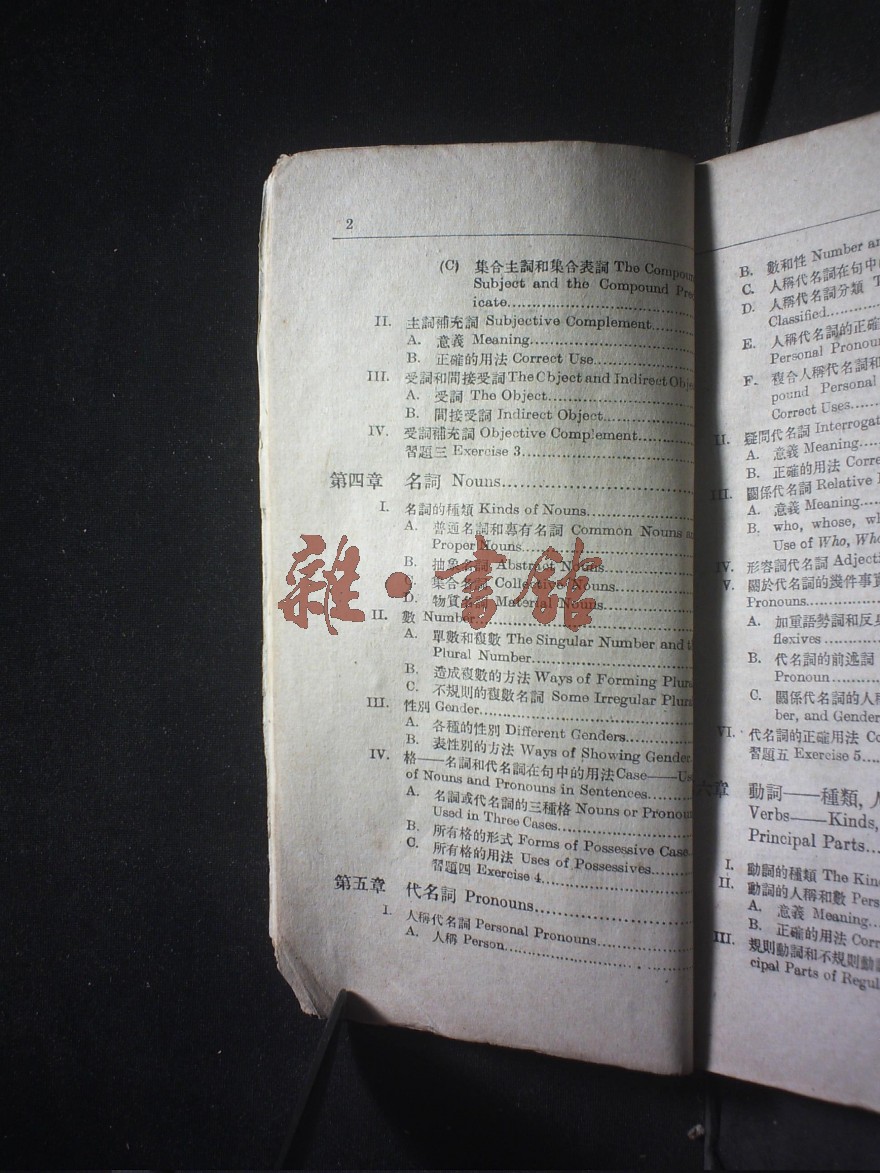 2
(C) 集合主詞和集合表詞 The Compoun
Subject and the Compound Pre
icate
II. 主詞補充詞 Subjective Complement
A. 意義 Meaning
B. 正確的用法 Correct Use
III. 受詞和間接受詞 The Object and Indirect Obje
A. 受詞 The Object
B. 間接受詞 Indirect Object
IV. 受詞補充詞 Objective Complement
習題三 Exercise 3
第四章 名詞 Nouns
I. 名詞的種類 Kinds of Nouns
A. 普通名詞和專有名詞 Common Nouns an
Proper Nouns
B. 抽象名詞 Abstract Nouns
C. 集合名詞 Collective Nouns
D. 物質名詞 Material Nouns
II. 數 Number
A. 單數和複數 The Singular Number and t
Plural Number
B. 造成複數的方法 Ways of Forming Plura
C. 不規則的複數名詞 Some Irregular Plura
III. 性別 Gender
A. 各種的性別 Different Genders
B. 表性別的方法 Ways of Showing Gender
IV. 格——名詞和代名詞在句中的用法 Case——Us
of Nouns and Pronouns in Sentences
A. 名詞或代名詞的三種格 Nouns or Pronou
Used in Three Cases
B. 所有格的形式 Forms of Possessive Case
C. 所有格的用法 Uses of Possessives
習題四 Exercise 4
第五章 代名詞 Pronouns
I. 人稱代名詞 Personal Pronouns
A. 人稱 Person
雜·書館
B. 數和性 Number an
C. 人稱代名詞在句中
D. 人稱代名詞分類 T
Classified
E. 人稱代名詞的正確
Personal Pronoun
F. 複合人稱代名詞和
pound Personal
Correct Uses
II. 疑問代名詞 Interrogat
A. 意義 Meaning
B. 正確的用法 Corre
III. 關係代名詞 Relative
A. 意義 Meaning
B. who, whose, wh
Use of Who, Who
IV. 形容詞代名詞 Adjecti
V. 關於代名詞的幾件事實
Pronouns
A. 加重語勢詞和反身
flexives
B. 代名詞的前述詞
Pronoun
C. 關係代名詞的人稱
ber, and Gender
VI. 代名詞的正確用法 Co
習題五 Exercise 5
六章 動詞——種類,人
Verbs——Kinds,
Principal Parts
I. 動詞的種類 The Kin
II. 動詞的人稱和數 Pers
A. 意義 Meaning
B. 正確的用法 Corr
III. 規則動詞和不規則動詞
cipal Parts of Regul